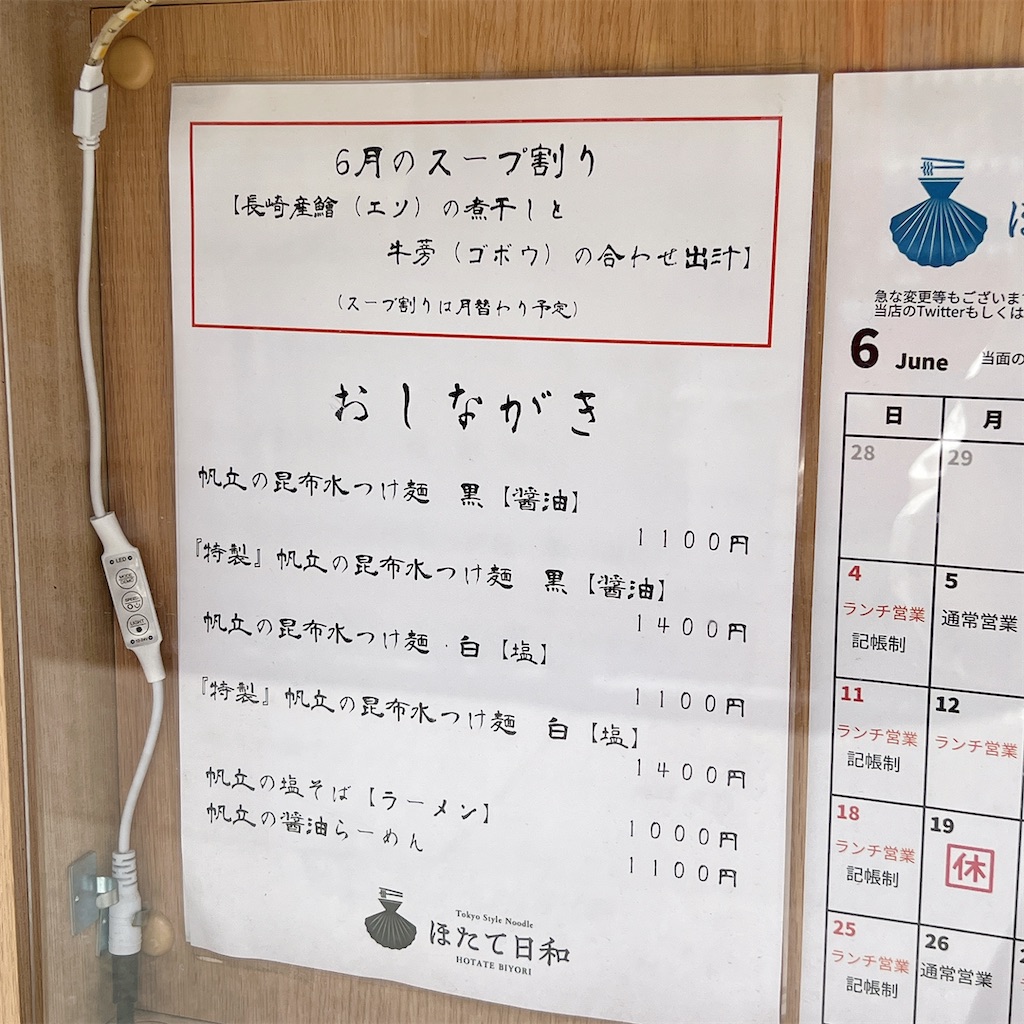 6月のスープ割り
【長崎産鱠（エソ）の煮干しと
牛蒡（ゴボウ）の合わせ出汁】
（スープ割りは月替わり予定）
おしながき
帆立の昆布水つけ麺　黒【醤油】
1100円
『特製』帆立の昆布水つけ麺　黒【醤油】
1400円
帆立の昆布水つけ麺・白【塩】
1100円
『特製』帆立の昆布水つけ麺　白【塩】
1400円
帆立の塩そば【ラーメン】
1000円
帆立の醤油らーめん
1100円
Tokyo Style Noodle
ほたて日和
HOTATE BIYORI
急な変更等もございま
当店のTwitterもしくは
6 June 当面の
日 月
28 29
4 5
ランチ営業 通常営業
記帳制
11 12
ランチ営業 ランチ営業
記帳制
18 19
ランチ営業 休
記帳制
25 26
ランチ営業 通常営業
記帳制
LED